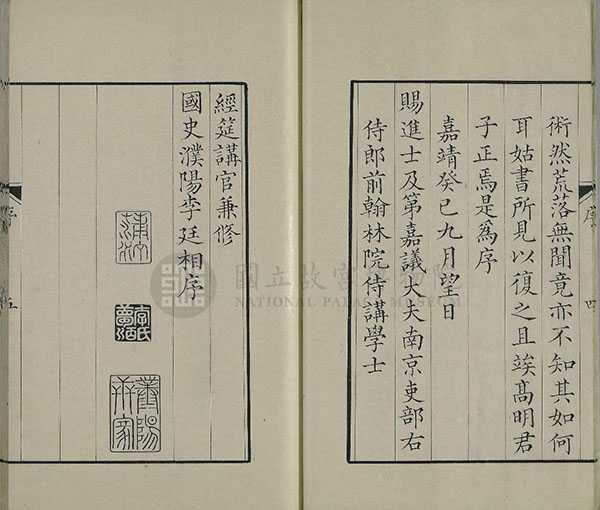 術然荒落無聞竟亦不知其如何
耳姑書所見以復之且竢髙明君
子正焉是為序
嘉靖癸巳九月望日
賜進士及第嘉議大夫南京吏部右
侍郎前翰林院侍講學士
經筵講官兼修
國史濮陽李廷相序
序
四
五
國立故宮博物院
NATIONAL PALACE MUSEUM